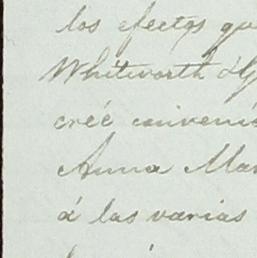 los efectos qu
Whitworth d'G
creé conveni
Anna Mar
á las varias